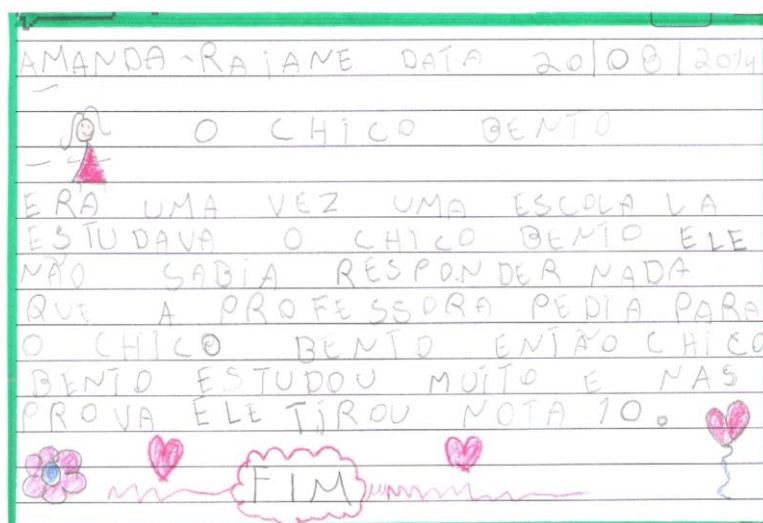 AMANDA-RAIANE DATA 20|08|2014
O CHICO BENTO
ERA UMA VEZ UMA ESCOLA LA
ESTUDAVA O CHICO BENTO ELE
NÃO SABIA RESPONDER NADA
QUE A PROFESSORA PEDIA PARA
O CHICO BENTO ENTÃO CHICO
BENTO ESTUDOU MUITO E NAS
PROVA ELE TIROU NOTA 10.
FIM